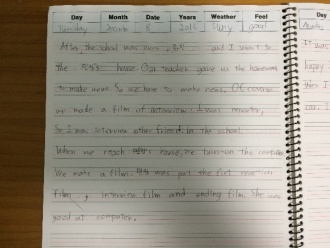 Day Month Date Years Weather Feel
Tuesday 8 2015 good
After the school was over and I went to
the house. Our teacher gave us the homework
to make news. So we have to make news. Of course
we made a film of interview. I was reporter,
So I was interview other friends in the school.
When we reach house, we turn on the computer
We made a film. was put the first
film, interview film and ending film. She was
good at computer.
It was